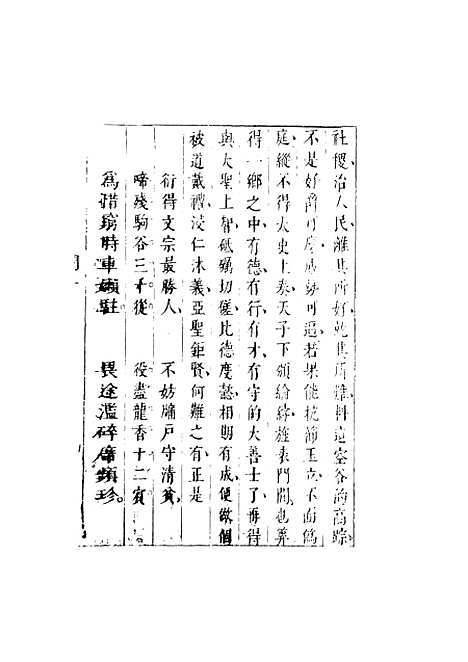 社稷治人民離其所好乾其所難料這空谷的高踪
不是好爵可縻威勢可逼若果能抗節玉立不面僞
庭縱不得太史上奏天子下頒給綍旌表門閭也算
得一鄉之中有德有行有才有守的大善士了再得
與大聖上智砥礪切磋比德度懿相期有成便做個
被道戴禮浸仁沐義亞聖鉅賢何難之有正是
衍得文宗最勝人 不妨牖戶守清貧
啼殘駒谷三千從 役盡龍香十二賓
爲惜窮時車嬾駐 畏途濫碎席珍